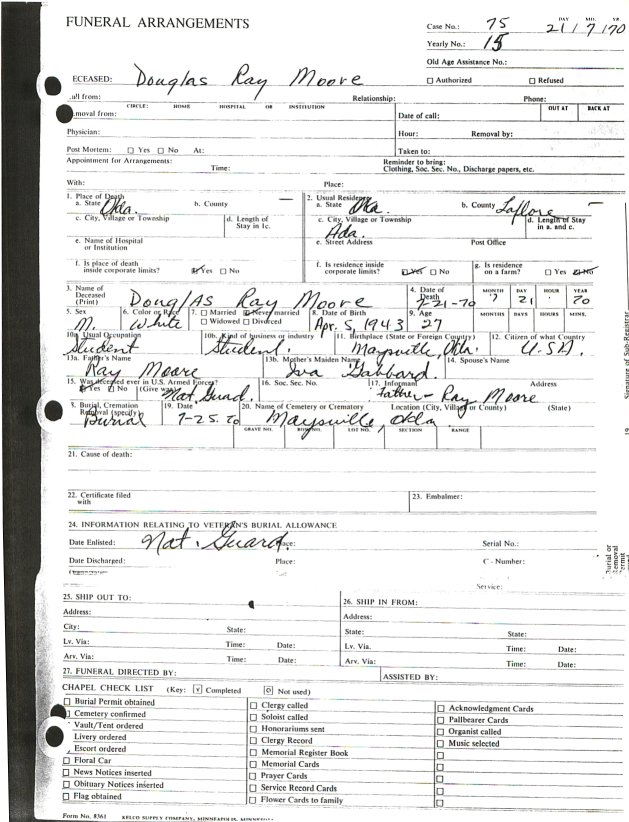 FUNERAL ARRANGEMENTS
Case No.: 75
DAY MO. YR.
21/7/70
Yearly No.: 15
Old Age Assistance No.:
DECEASED: Douglas Ray Moore
☐ Authorized ☐ Refused
Call from: Relationship: Phone:
CIRCLE: HOME HOSPITAL OR INSTITUTION
OUT AT BACK AT
Removal from: Date of call:
Physician: Hour: Removal by:
Post Mortem: ☐ Yes ☐ No At: Taken to:
Appointment for Arrangements: Time: Reminder to bring:
Clothing, Soc. Sec. No., Discharge papers, etc.
With: Place:
1. Place of Death
a. State Okla. b. County —
2. Usual Residence
a. State Okla. b. County Laflore
c. City, Village or Township d. Length of Stay in 1c.
c. City, Village or Township Ada. d. Length of Stay in a. and c.
e. Name of Hospital or Institution
e. Street Address Post Office
f. Is place of death inside corporate limits? ☑ Yes ☐ No
f. Is residence inside corporate limits? ☑ Yes ☐ No
g. Is residence on a farm? ☐ Yes ☑ No
3. Name of Deceased (Print) Douglas Ray Moore
4. Date of Death 7-21-70
MONTH 7 DAY 21 HOUR YEAR 70
5. Sex M. 6. Color or Race White
7. ☐ Married ☑ Never married ☐ Widowed ☐ Divorced
8. Date of Birth Apr. 5, 1943
9. Age 27 MONTHS DAYS HOURS MINS.
10a. Usual Occupation Student
10b. Kind of business or industry Student.
11. Birthplace (State or Foreign Country) Maysville, Okla.
12. Citizen of what Country U.S.A.
13a. Father's Name Ray Moore
13b. Mother's Maiden Name Iva Gabbard
14. Spouse's Name
15. Was deceased ever in U.S. Armed Forces? Yes ☐ No (Give war) Nat. Guard.
16. Soc. Sec. No.
17. Informant Address
Father - Ray Moore
18. Burial, Cremation Removal (specify) Burial
19. Date 7-25-70
20. Name of Cemetery or Crematory Location (City, Village or County) (State)
Maysville, Okla
GRAVE NO. ROW NO. LOT NO. SECTION RANGE
21. Cause of death:
22. Certificate filed with
23. Embalmer:
24. INFORMATION RELATING TO VETERAN'S BURIAL ALLOWANCE
Date Enlisted: Nat. Guard. Place: Serial No.:
Date Discharged: Place: C - Number:
Service:
25. SHIP OUT TO:
Address:
City: State:
Lv. Via: Time: Date:
Arv. Via: Time: Date:
26. SHIP IN FROM:
Address:
State: State:
Lv. Via. Time: Date:
Arv. Via: Time: Date:
27. FUNERAL DIRECTED BY: ASSISTED BY:
CHAPEL CHECK LIST (Key: ☑ Completed ☐ Not used)
☐ Burial Permit obtained
☐ Cemetery confirmed
Vault/Tent ordered
Livery ordered
Escort ordered
☐ Floral Car
☐ News Notices inserted
☐ Obituary Notices inserted
☐ Flag obtained
☐ Clergy called
☐ Soloist called
☐ Honorariums sent
☐ Clergy Record
☐ Memorial Register Book
☐ Memorial Cards
☐ Prayer Cards
☐ Service Record Cards
☐ Flower Cards to family
☐ Acknowledgment Cards
☐ Pallbearer Cards
☐ Organist called
☐ Music selected
Form No. 8361 KELCO SUPPLY COMPANY, MINNEAPOLIS, MINNESOTA
Signature of Sub-Registrar
19
Burial or Removal Permit